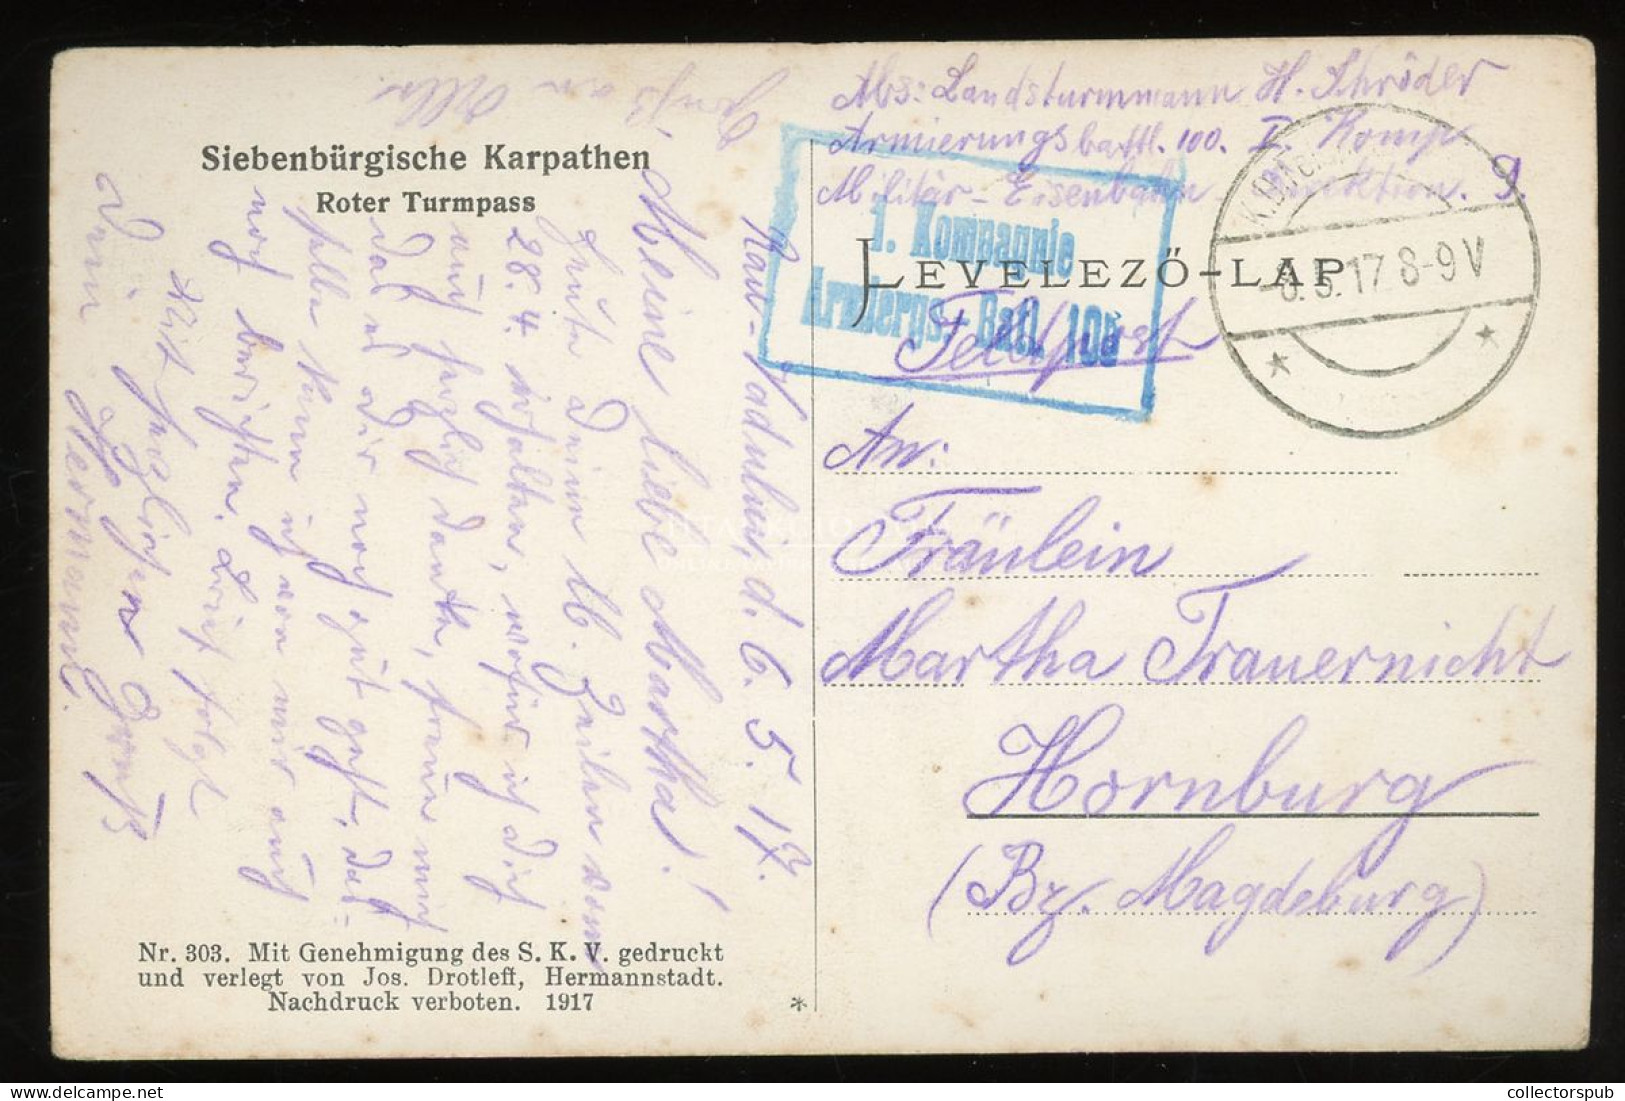 Gruß an Alle.
Siebenbürgische Karpathen
Roter Turmpass
Rau-Vadului, d. 6. 5. 17.
Meine liebe Martha!
Heute Deine lb. Zeilen vom
28.4. erhalten, wofür ich Dir
auch herzlich danke, freue mich
daß es Dir noch gut geht, das=
selbe kann ich von mir auch
noch berichten. Brief folgt
Mit herzlichem Gruß
Dein Hermann.
Nr. 303. Mit Genehmigung des S. K. V. gedruckt
und verlegt von Jos. Drotleff, Hermannstadt.
Nachdruck verboten. 1917
*
Abs: Landsturmmann H. Schröder
Armierungsbattl. 100. I. Komp.
Militär-Eisenbahn Direktion. 9.
1. Kompagnie
Armiergs.-Batl. 100
LEVELEZŐ-LAP
Feldpost
8.5.17 8-9V
An:
Fräulein
Martha Trauernicht
Hornburg
(Bz. Magdeburg)
collectorspub